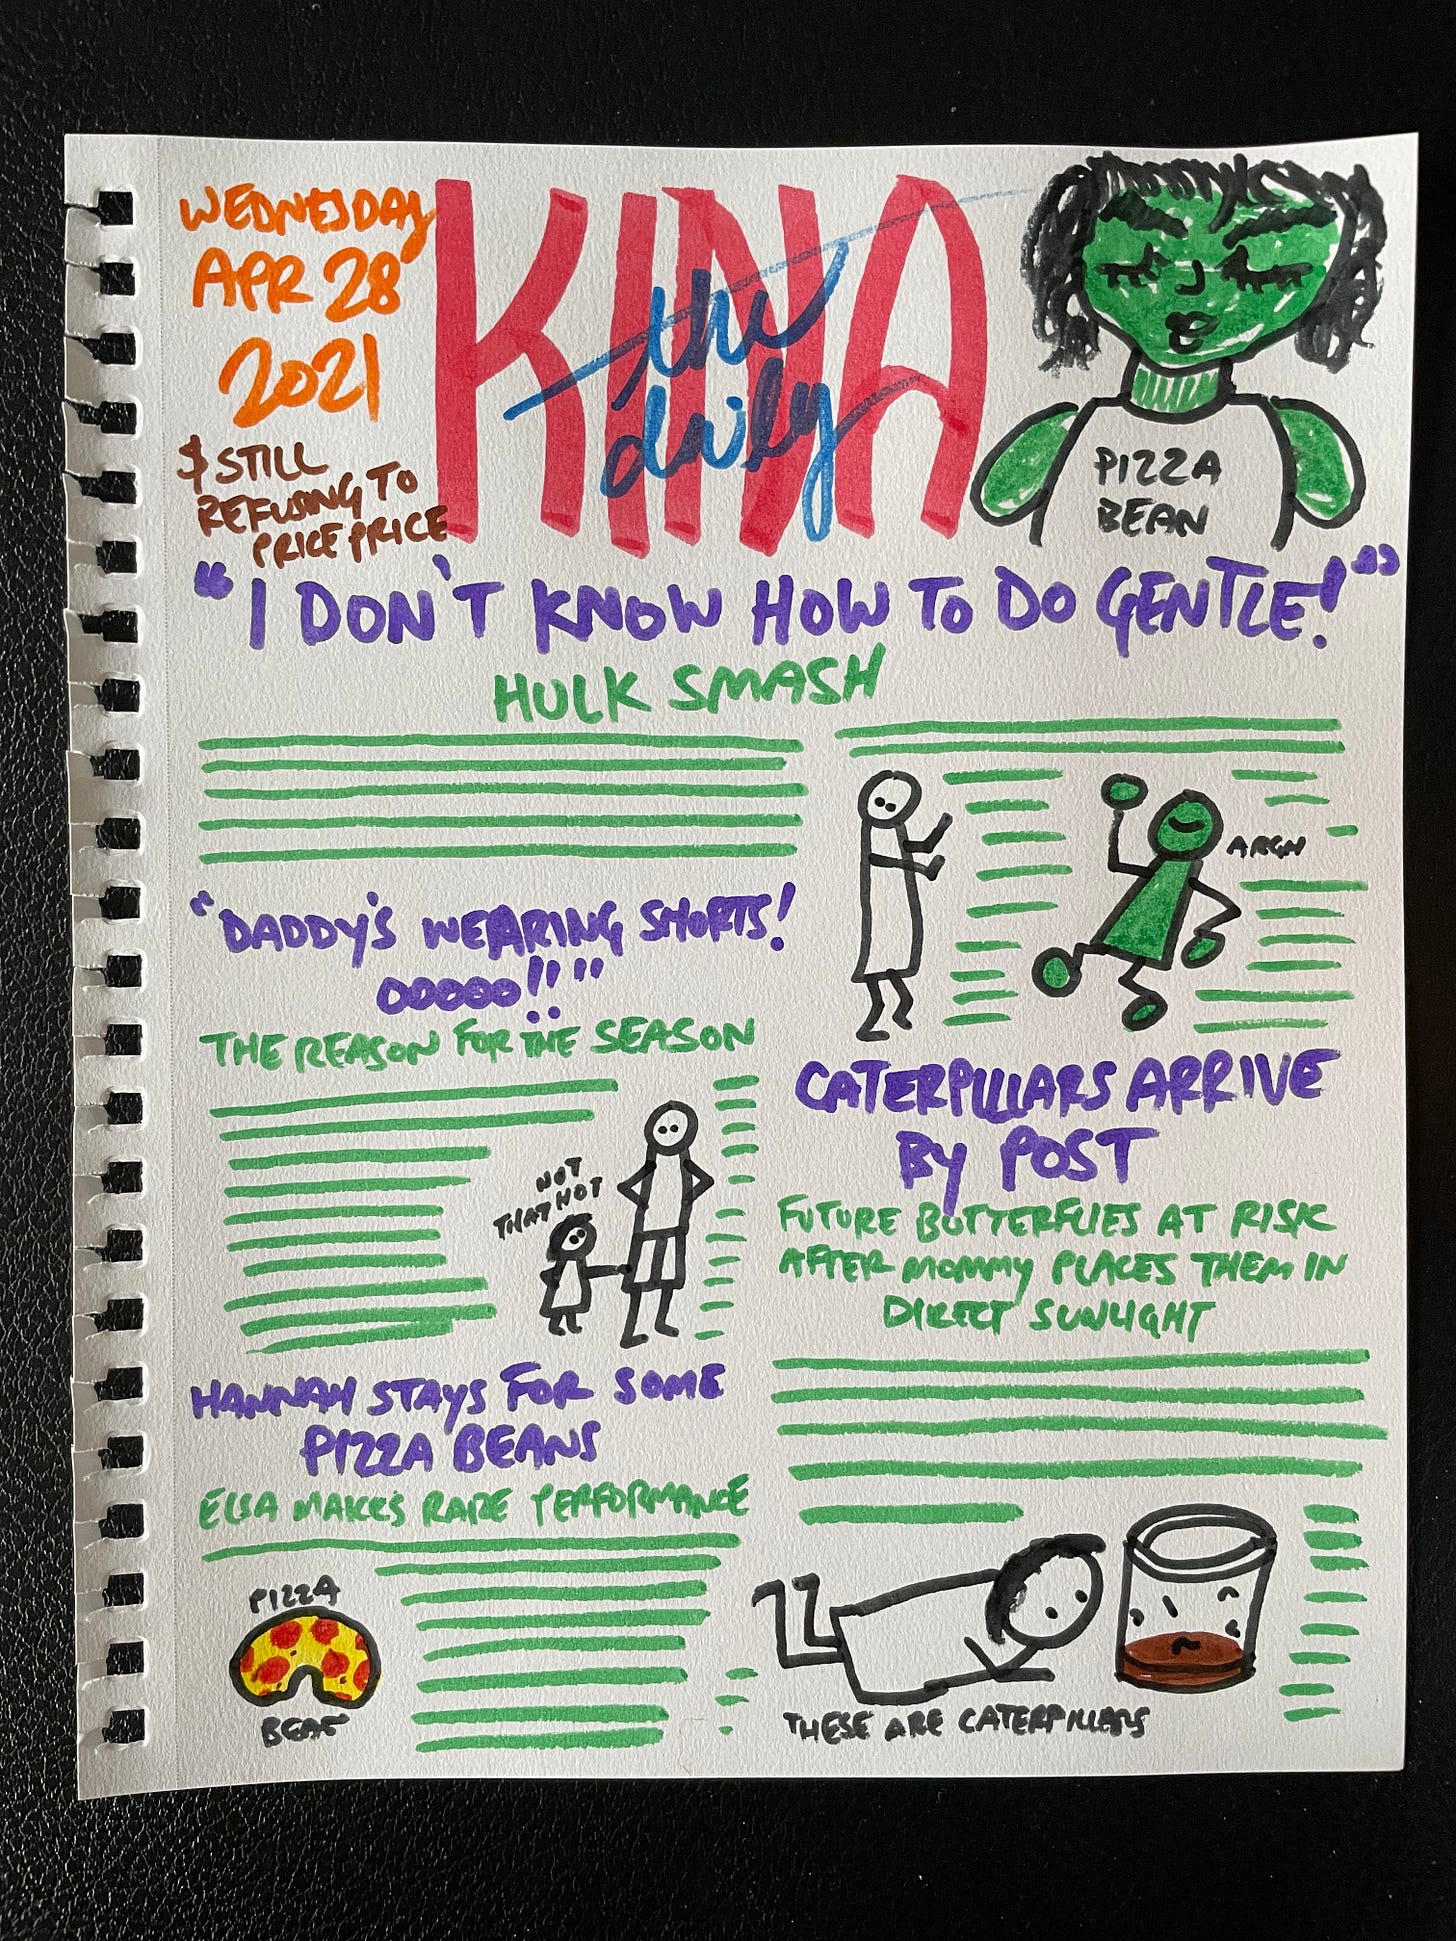 WEDNESDAY
APR 28
2021
$ STILL
REFUSING TO
PRICE PRICE
KINA
the
daily
PIZZA
BEAN
"I DON'T KNOW HOW TO DO GENTLE!"
HULK SMASH
ARGH
"DADDY'S WEARING SHORTS!
OOOOO!!"
THE REASON FOR THE SEASON
NOT
THAT HOT
CATERPILLARS ARRIVE
BY POST
FUTURE BUTTERFLIES AT RISK
AFTER MOMMY PLACES THEM IN
DIRECT SUNLIGHT
HANNAH STAYS FOR SOME
PIZZA BEANS
ELSA MAKES RARE PERFORMANCE
PIZZA
BEAN
THESE ARE CATERPILLARS